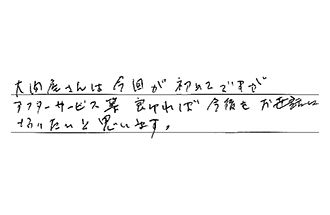 大問屋さんは今回が初めてですが
アフターサービス等良ければ今後もお世話に
なりたいと思います。